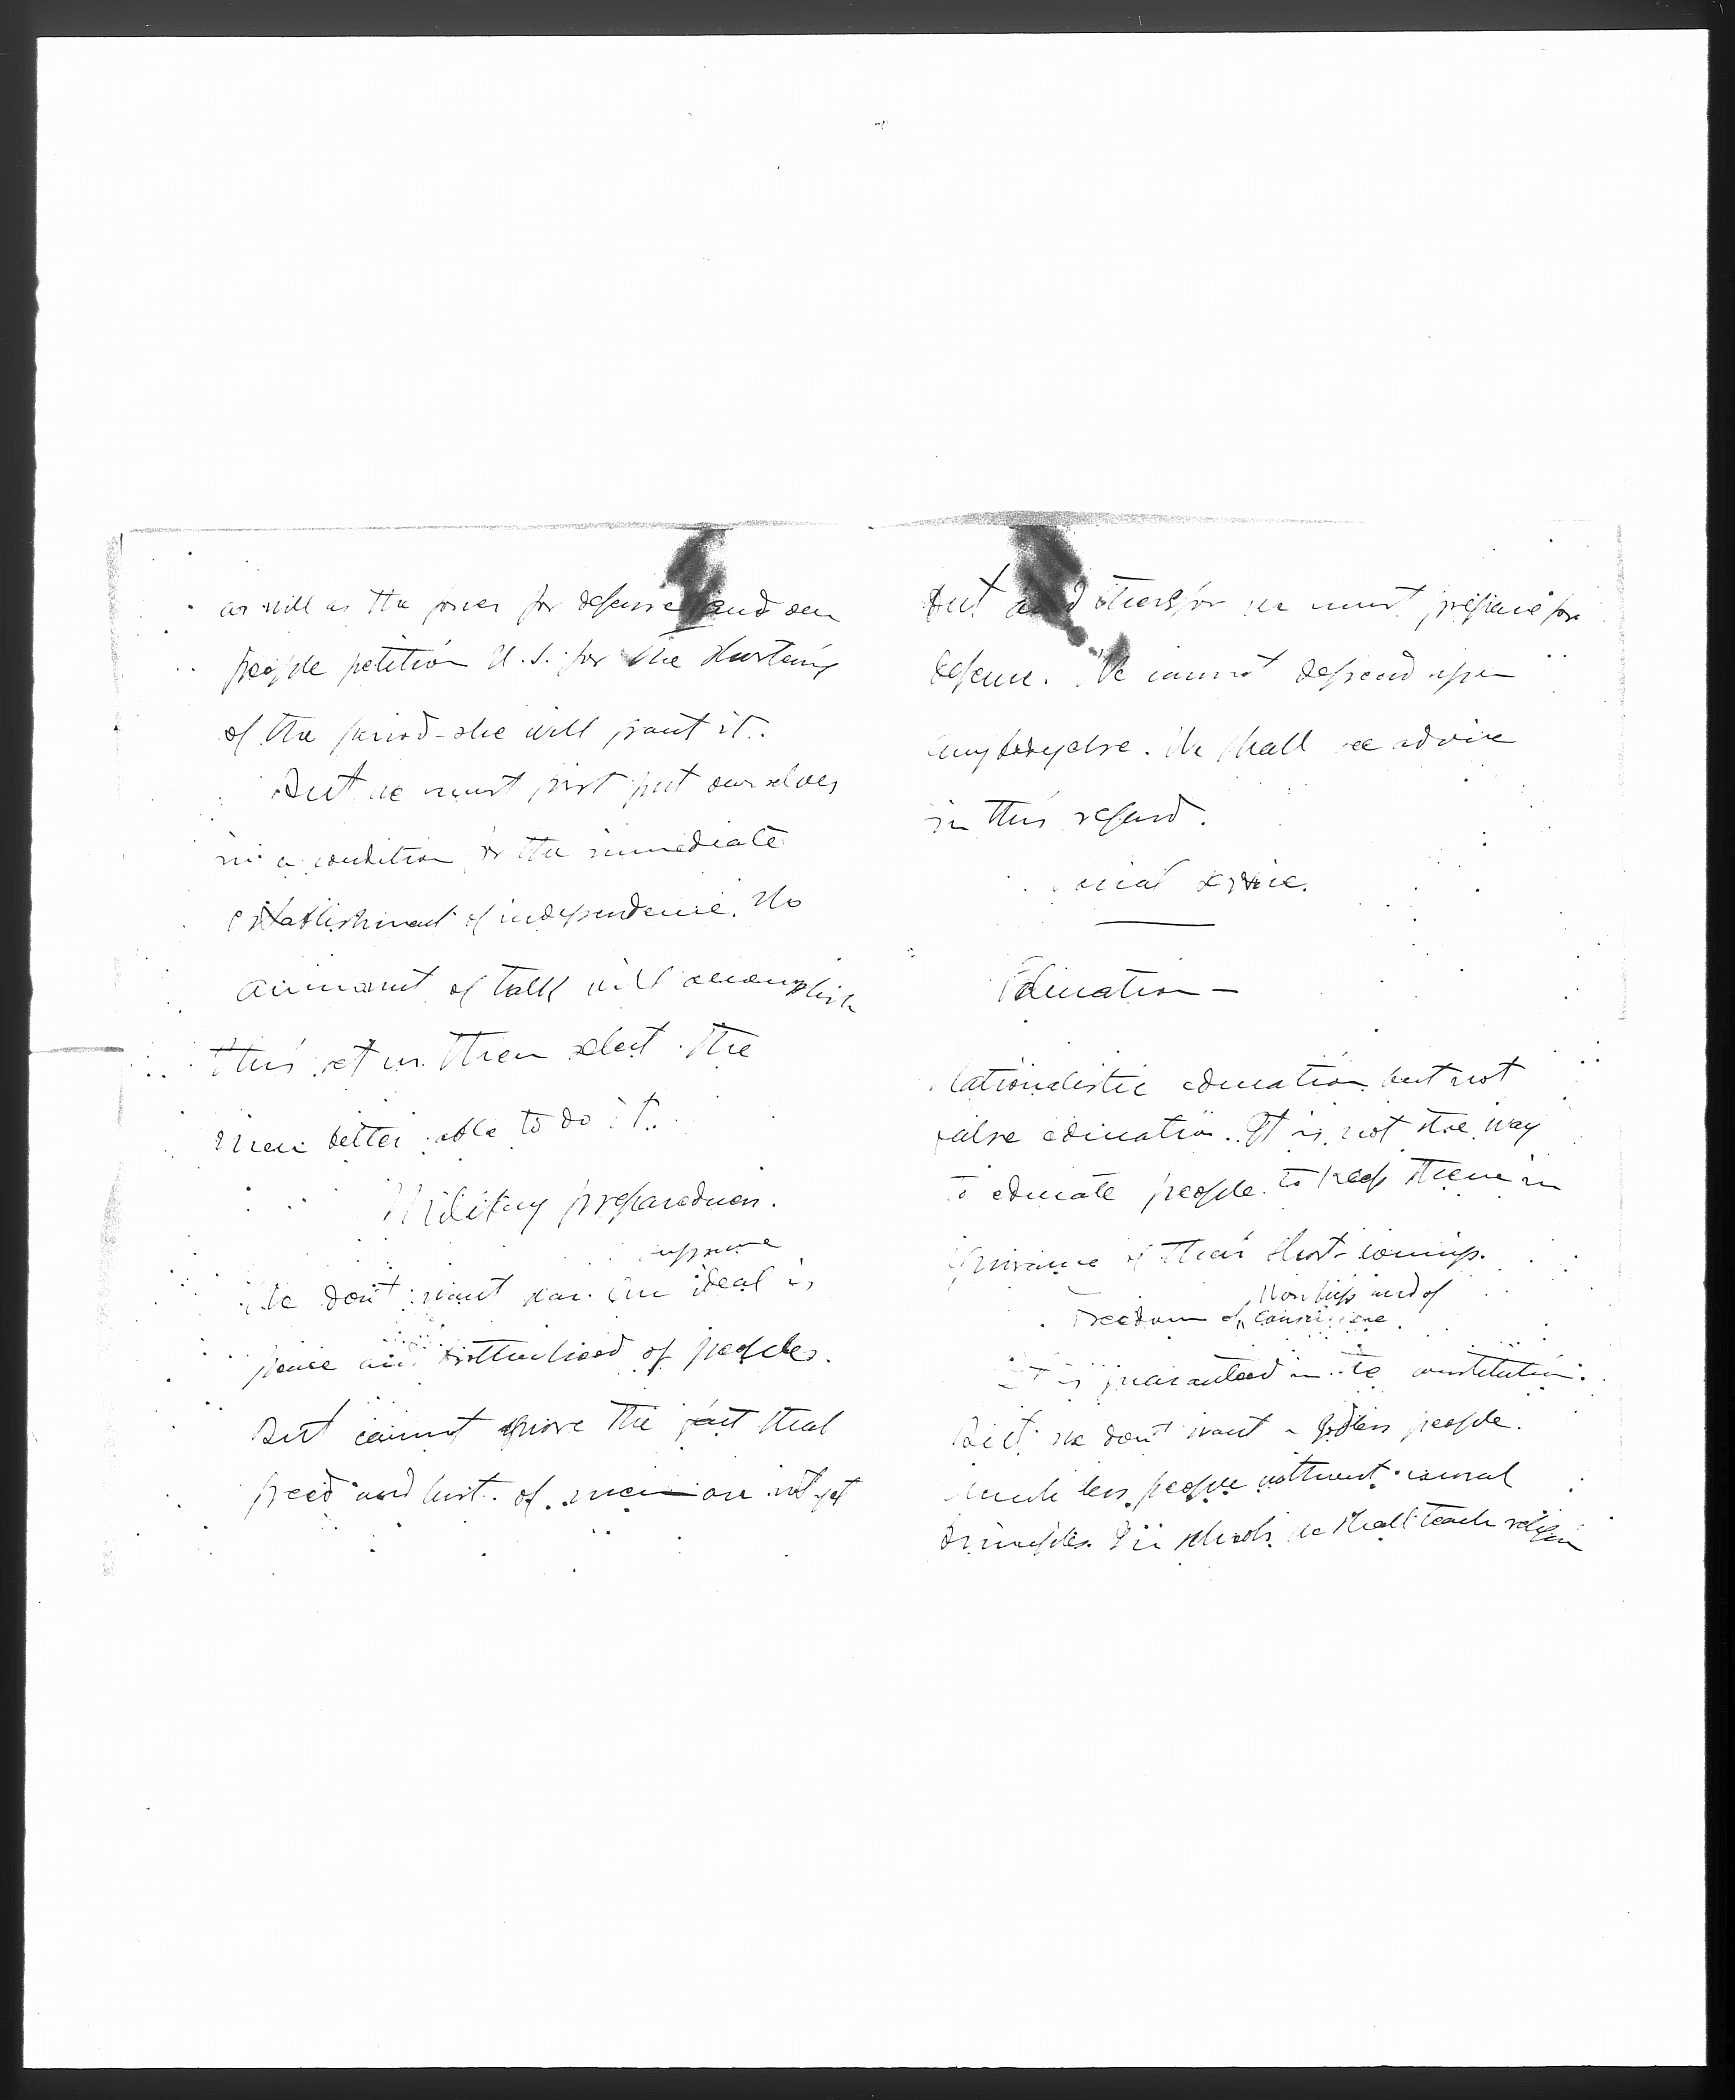 as well as the power for defense and our
people petition U.S. for the shortening
of the period - she will grant it.
But we must first put ourselves
in a condition for the immediate
establishment of independence. No
ammount of talk will accomplish
this. Let us then select the
men better able to do it.
Military preparedness.
supreme
We don't want war. Our ideal is
peace and brotherhood of peoples.
But cannot ignore the fact that
greed and lust of men are not yet
and therefor we must prepare for
defense. We cannot depend upon
anybody else. We shall advise
in this regard.
Education -
Nationalistic education but not
false education. It is not the way
to educate people to keep them in
ignorance of their short-comings.
Worship and of
Freedom of conscience.
It is guaranteed in the constitution.
But we don't want a godless people.
much less people without moral
principles. In schools we shall teach religion